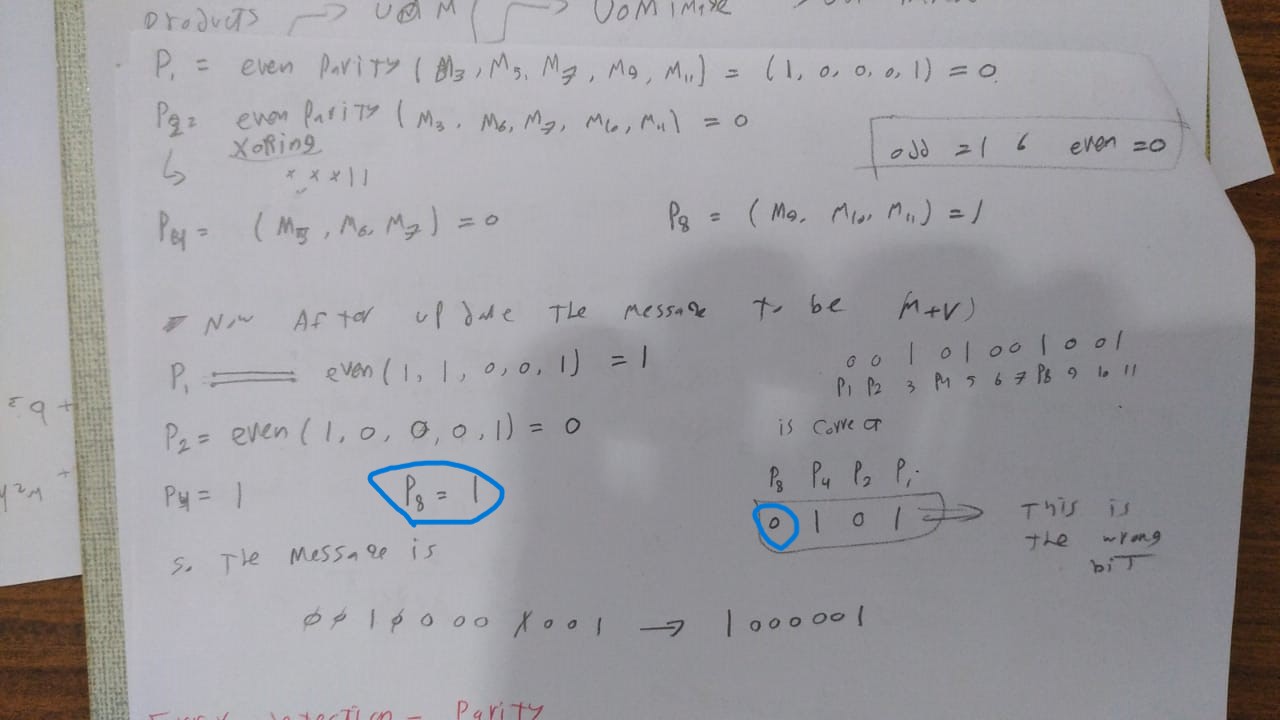 products → UOM → UOM
P1 = even Parity ( M3, M5, M7, M9, M11) = (1, 0, 0, 0, 1) = 0
P2= even Parity ( M3, M6, M7, M10, M11) = 0
XORing
odd = 1 6 even = 0
↳ x x x 1 1
P4 = ( M5, M6, M7 ) = 0 P8 = ( M9, M10, M11 ) = 1
Now After update the message to be (M+V)
P1 even( 1, 1, 0, 0, 1) = 1
0 0 1 0 1 0 0 1 0 0 1
P1 P2 3 P4 5 6 7 P8 9 10 11
P2 = even( 1, 0, 0, 0, 1) = 0
is correct
P8 P4 P2 P1
P4 = 1 P8 = 1
0 1 0 1 → This is
the wrong
bit
So The message is
0 0 1 0 0 0 0 1 0 0 1 → 1 0 0 0 0 0 1
Parity